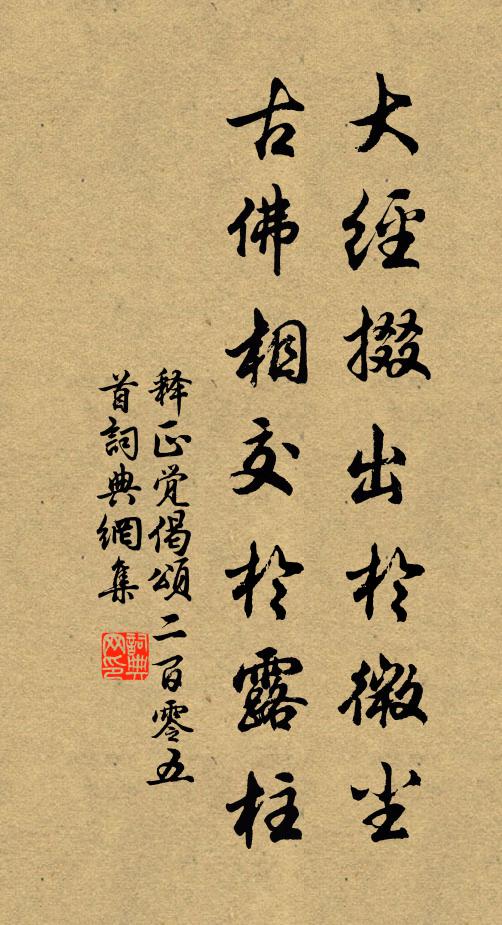 大經掇出於微尘
古佛相交於露柱
释正觉偈頌二百零五
首詞典網集
詞典网印